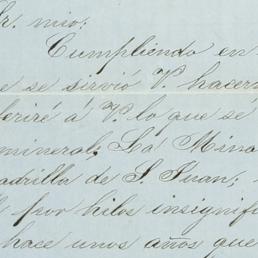 Sr. mio:
Cumpliendo en
e se sirvió V. hacer
feriré á V. lo que se
mineral; La Mina
adrilla de S. Juan;
por hilos insignifi
hace unos años que